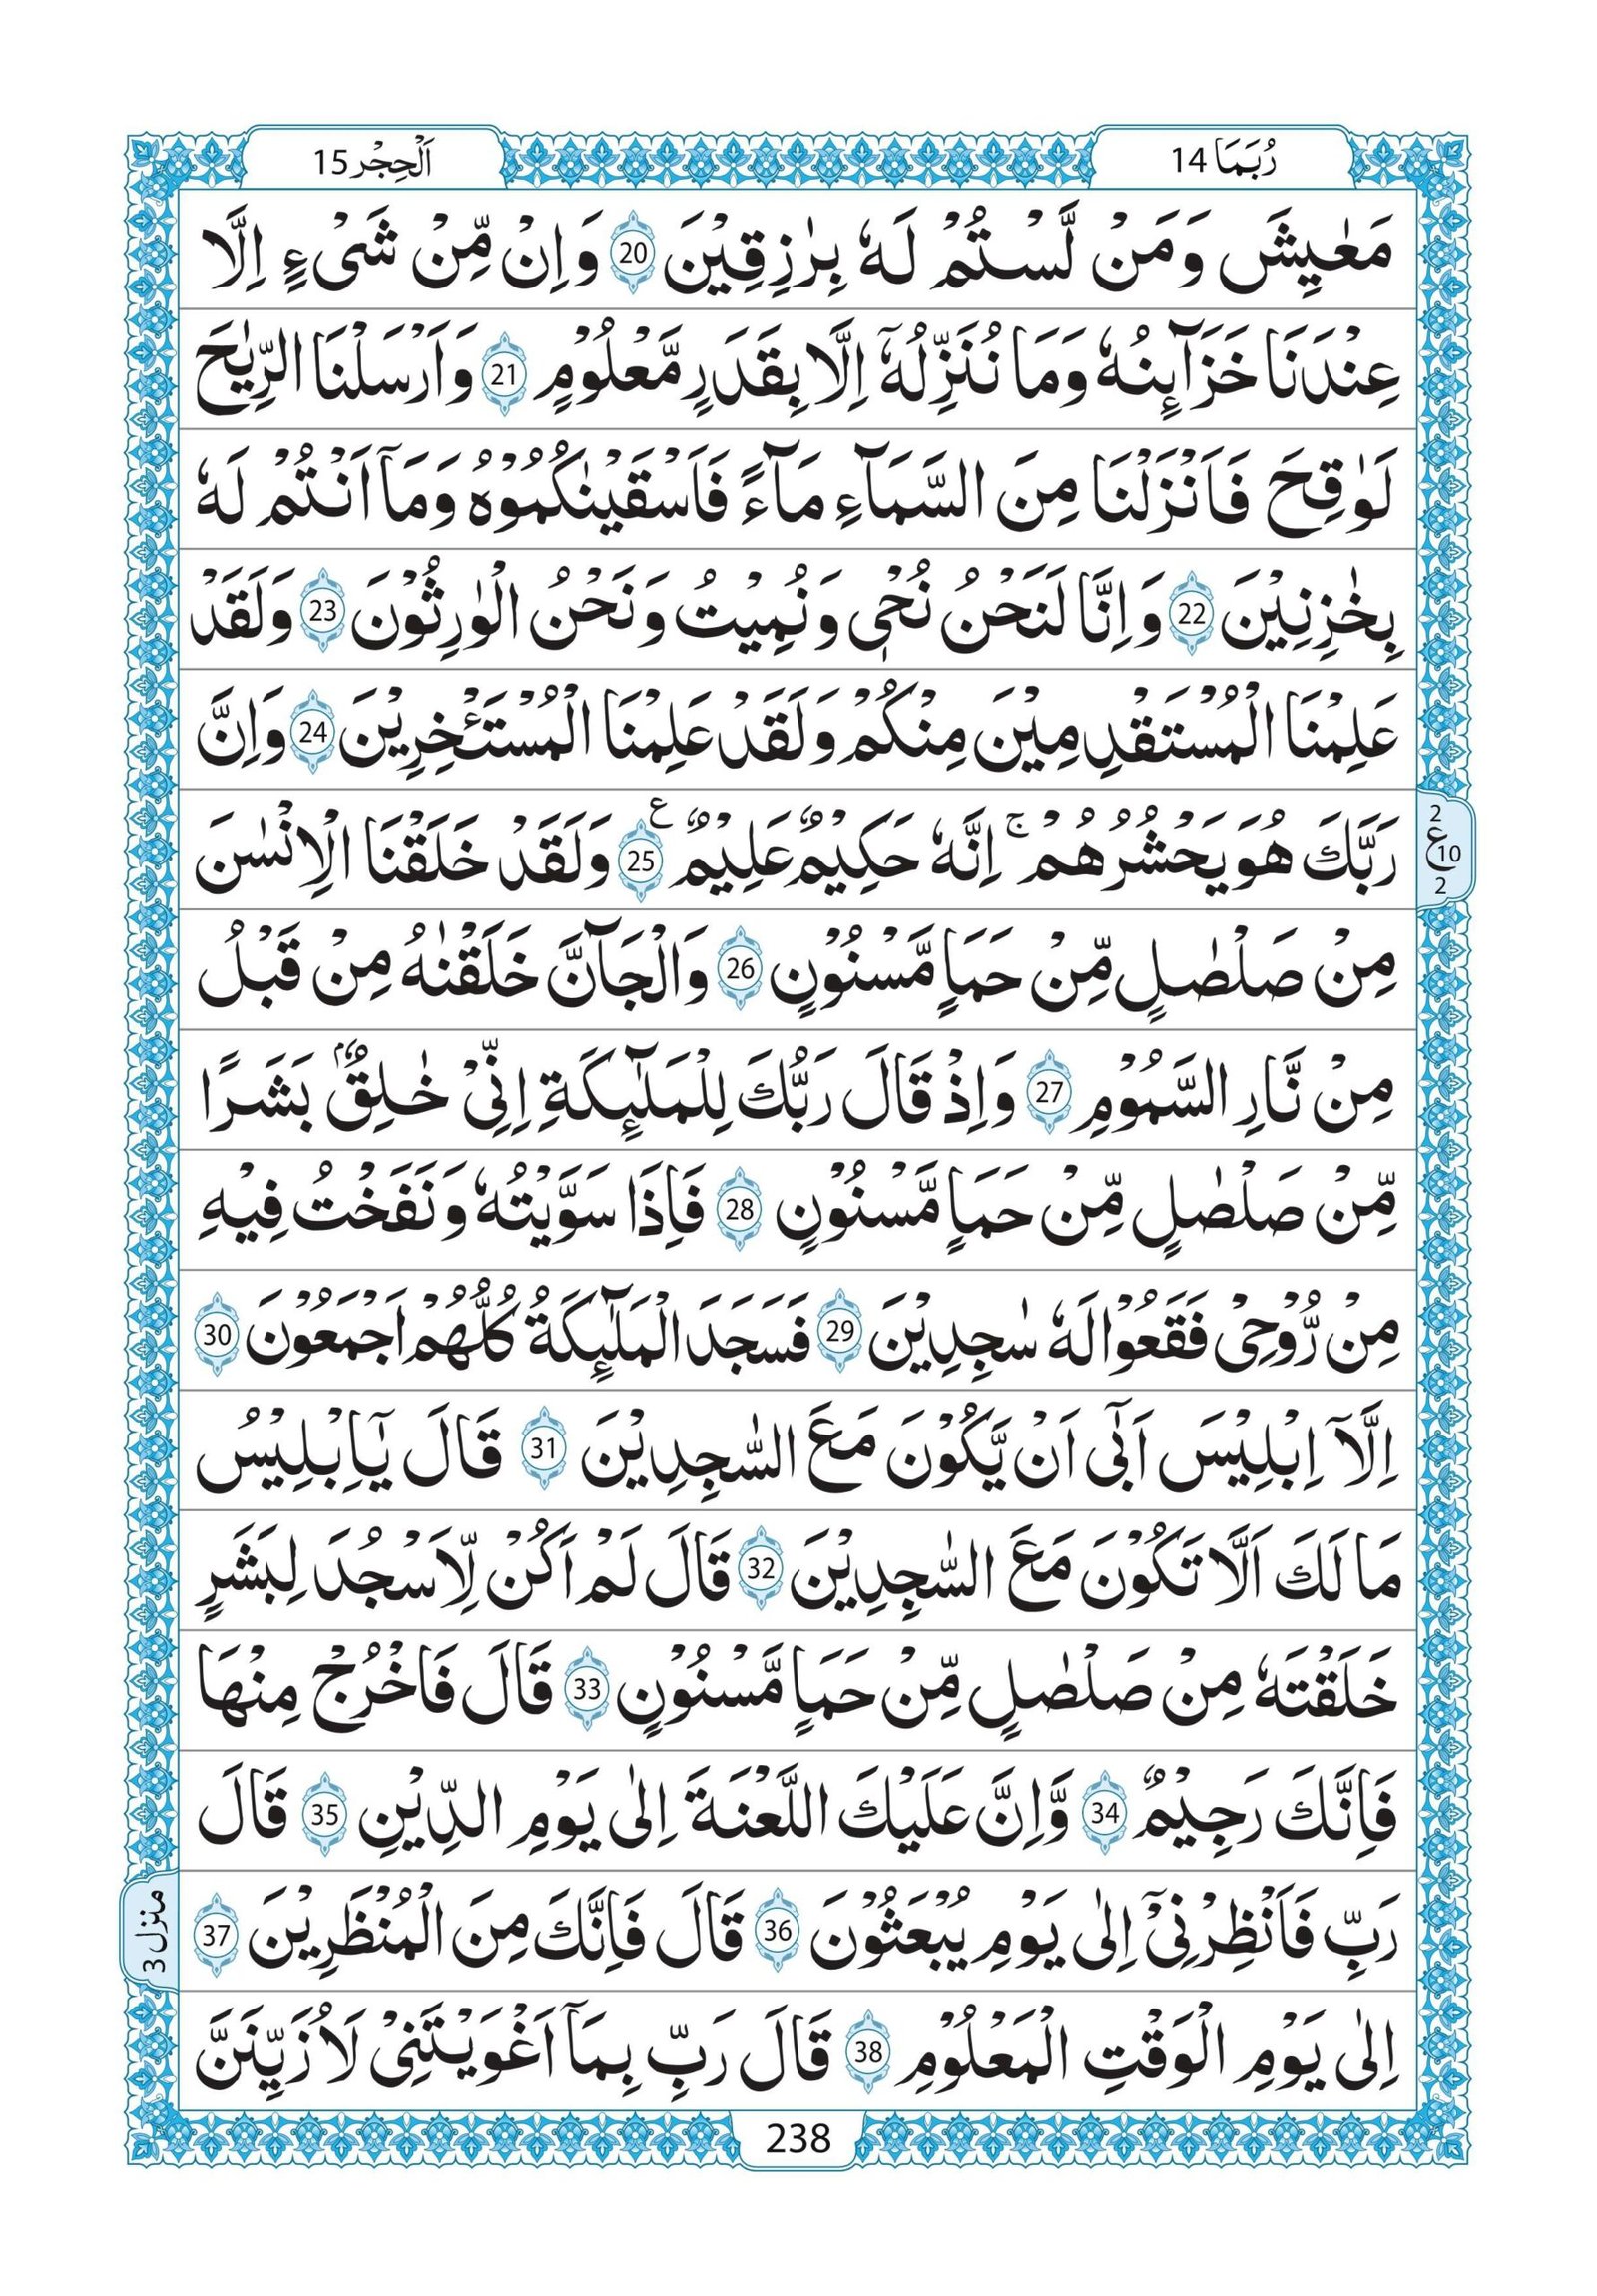 رُبَمَا 14
اَلْحِجْر 15
مَعٰیِشَ وَ مَنْ لَّسْتُمْ لَهٗ بِرٰزِقِیْنَ 20 وَ اِنْ مِّنْ شَیْءٍ اِلَّا
عِنْدَنَا خَزَآىِٕنُهٗ وَ مَا نُنَزِّلُهٗۤ اِلَّا بِقَدَرٍ مَّعْلُوْمٍ 21 وَ اَرْسَلْنَا الرِّیٰحَ
لَوٰقِحَ فَاَنْزَلْنَا مِنَ السَّمَآءِ مَآءً فَاَسْقَیْنٰكُمُوْهُ وَ مَاۤ اَنْتُمْ لَهٗ
بِخٰزِنِیْنَ 22 وَ اِنَّا لَنَحْنُ نُحْیٖ وَ نُمِیْتُ وَ نَحْنُ الْوٰرِثُوْنَ 23 وَ لَقَدْ
عَلِمْنَا الْمُسْتَقْدِمِیْنَ مِنْكُمْ وَ لَقَدْ عَلِمْنَا الْمُسْتَـْٔخِرِیْنَ 24 وَ اِنَّ
رَبَّكَ هُوَ یَحْشُرُهُمْ ۚ اِنَّهٗ حَكِیْمٌ عَلِیْمٌ 25 ع وَ لَقَدْ خَلَقْنَا الْاِنْسٰنَ
2
ع 10
2
مِنْ صَلْصٰلٍ مِّنْ حَمَاٍ مَّسْنُوْنٍ 26 وَ الْجَآنَّ خَلَقْنٰهُ مِنْ قَبْلُ
مِنْ نَّارِ السَّمُوْمِ 27 وَ اِذْ قَالَ رَبُّكَ لِلْمَلٰٓىِٕكَةِ اِنِّیْ خٰلِقٌۢ بَشَرًا
مِّنْ صَلْصٰلٍ مِّنْ حَمَاٍ مَّسْنُوْنٍ 28 فَاِذَا سَوَّیْتُهٗ وَ نَفَخْتُ فِیْهِ
مِنْ رُّوْحِیْ فَقَعُوْا لَهٗ سٰجِدِیْنَ 29 فَسَجَدَ الْمَلٰٓىِٕكَةُ كُلُّهُمْ اَجْمَعُوْنَ 30
اِلَّاۤ اِبْلِیْسَ اَبٰۤی اَنْ یَّكُوْنَ مَعَ السّٰجِدِیْنَ 31 قَالَ یٰۤاِبْلِیْسُ
مَا لَكَ اَلَّا تَكُوْنَ مَعَ السّٰجِدِیْنَ 32 قَالَ لَمْ اَكُنْ لِّاَسْجُدَ لِبَشَرٍ
خَلَقْتَهٗ مِنْ صَلْصٰلٍ مِّنْ حَمَاٍ مَّسْنُوْنٍ 33 قَالَ فَاخْرُجْ مِنْهَا
فَاِنَّكَ رَجِیْمٌ 34 وَّ اِنَّ عَلَیْكَ اللَّعْنَةَ اِلٰی یَوْمِ الدِّیْنِ 35 قَالَ
رَبِّ فَاَنْظِرْنِیْۤ اِلٰی یَوْمِ یُبْعَثُوْنَ 36 قَالَ فَاِنَّكَ مِنَ الْمُنْظَرِیْنَ 37
منزل 3
اِلٰی یَوْمِ الْوَقْتِ الْمَعْلُوْمِ 38 قَالَ رَبِّ بِمَاۤ اَغْوَیْتَنِیْ لَاُزَیِّنَنَّ
238